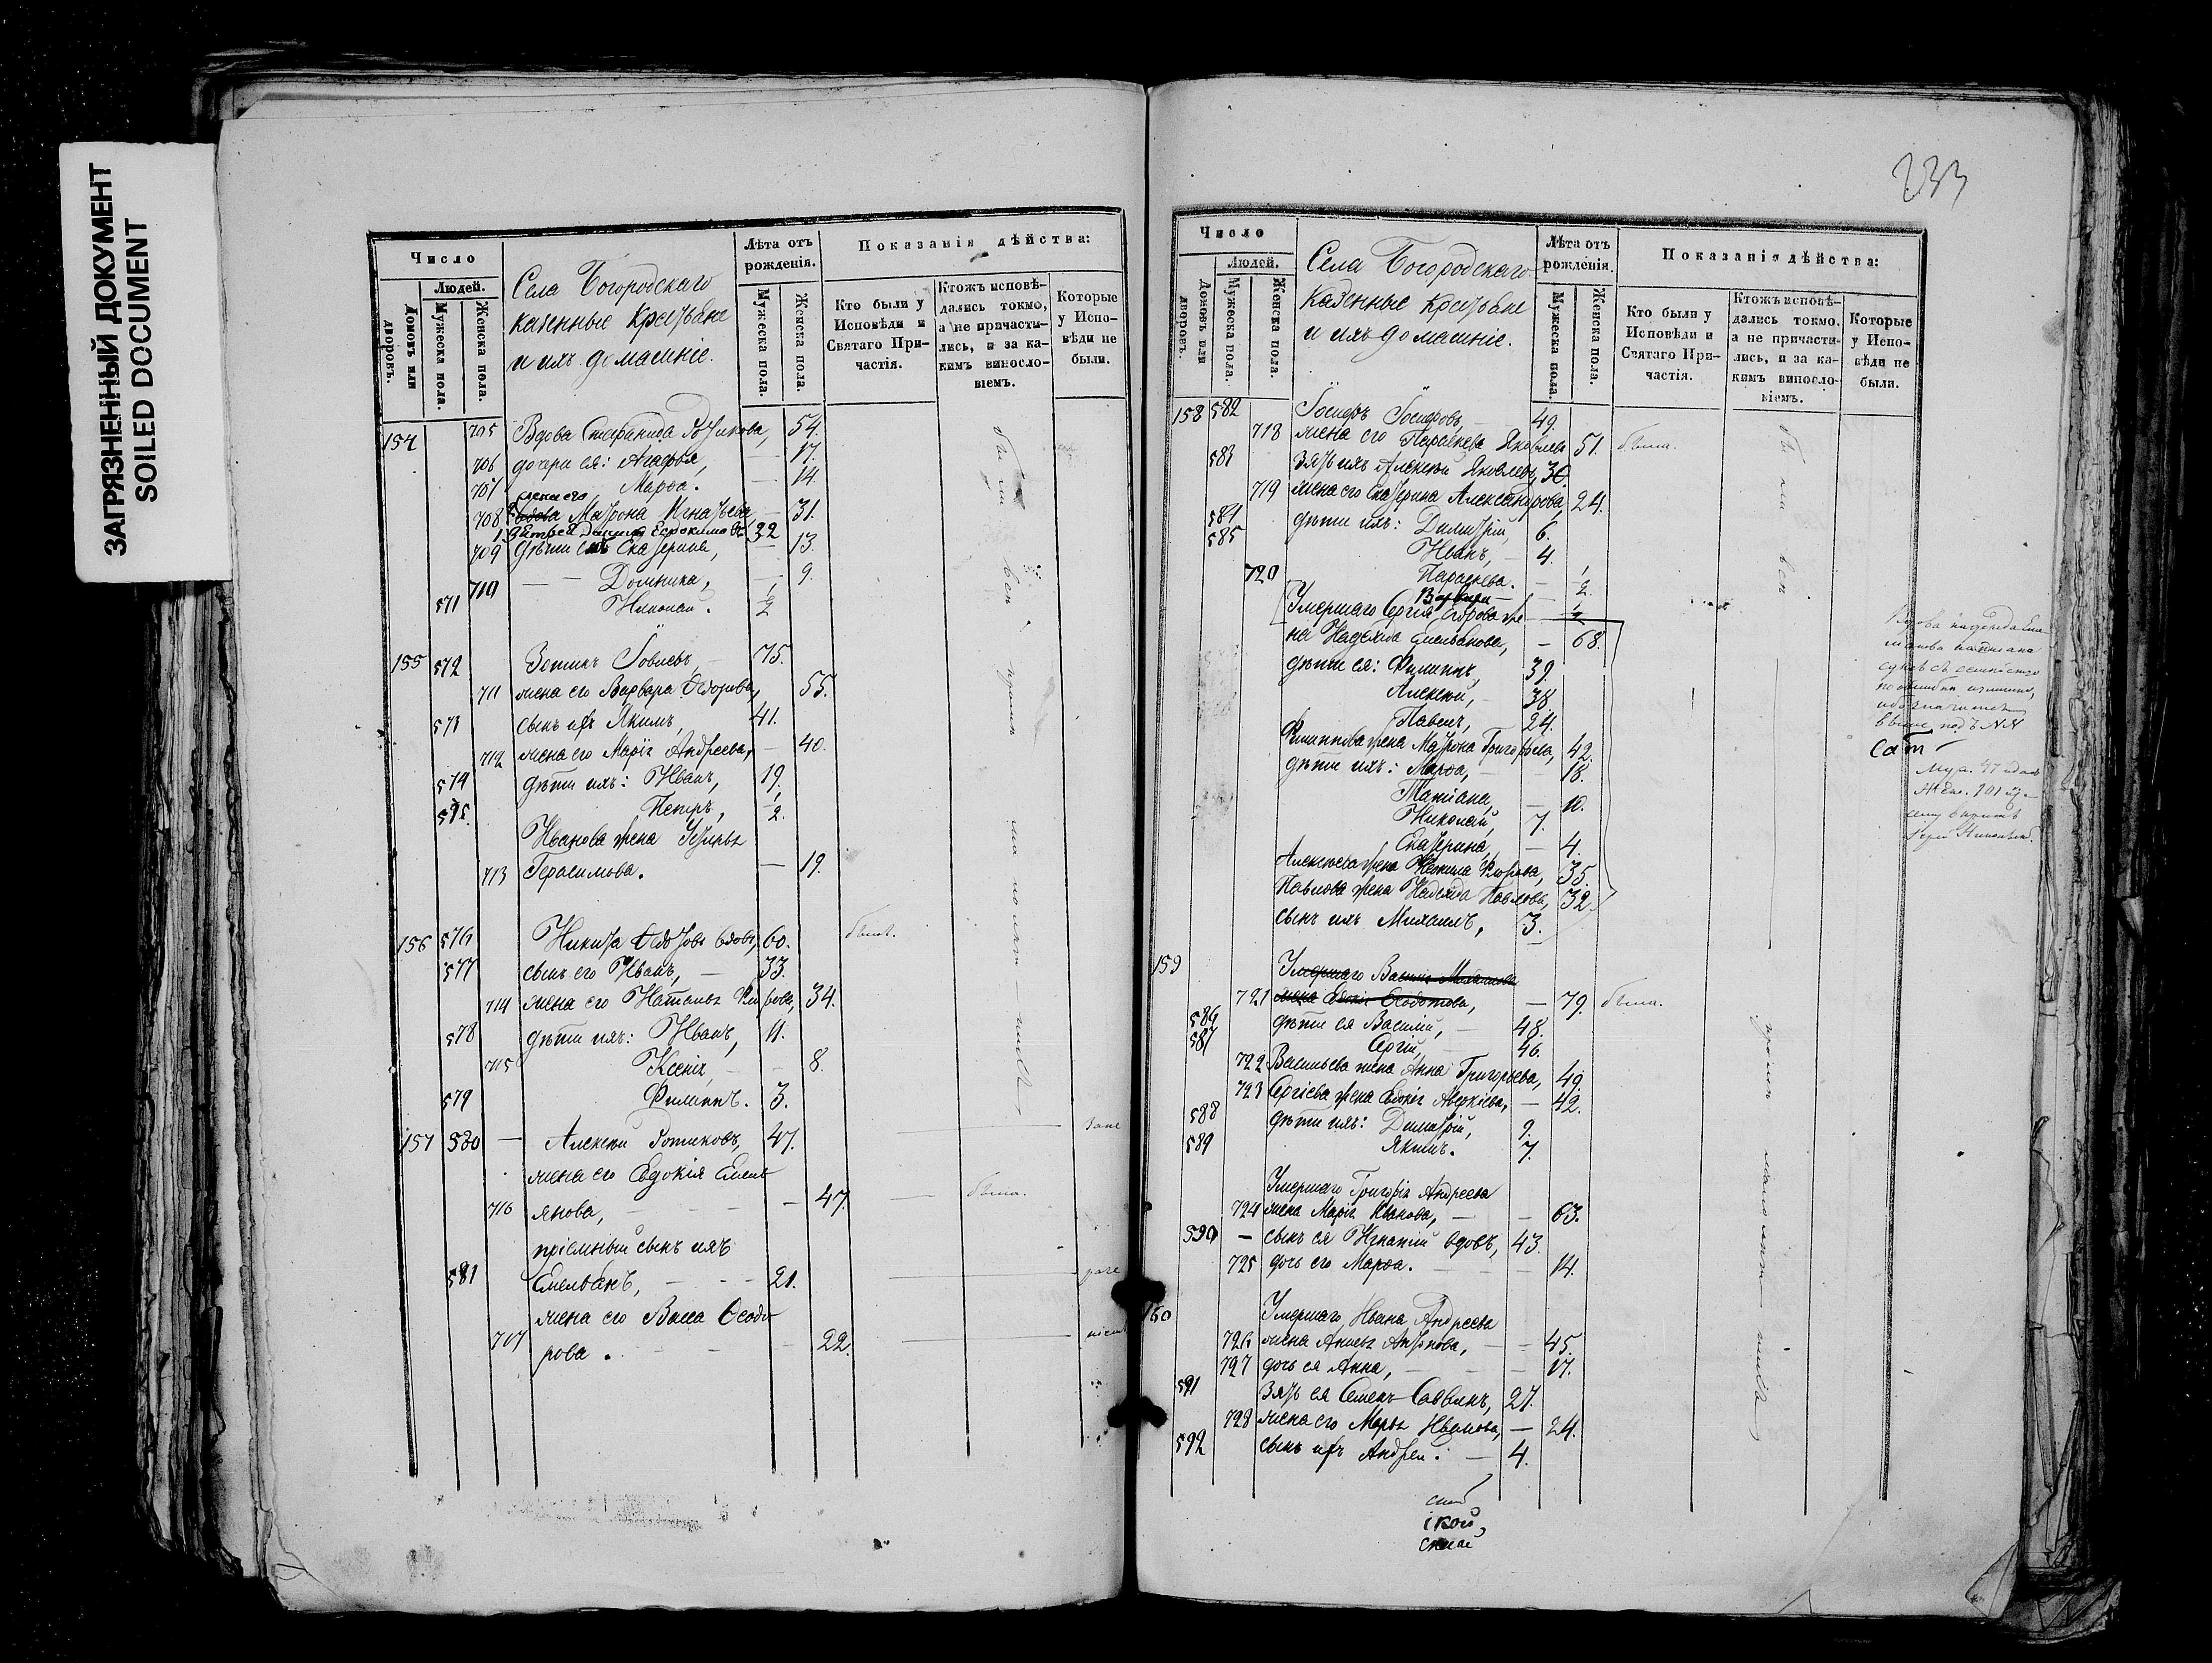 ЗАГРЯЗНЕННЫЙ ДОКУМЕНТ
SOILED DOCUMENT
Число
Людей.
Домовъ или дворовъ.
Мужеска пола.
Женска пола.
Села Богородскаго
казенные крестьяне
и ихъ домашніе.
Лѣта отъ рожденія.
Мужеска пола.
Женска пола.
Показанія дѣйства:
Кто были у Исповѣди и Святаго Причастія.
Ктожъ исповѣдались токмо, а не причастились, и за какимъ винословіемъ.
Которые у Исповѣди не были.
154 705 Вдова Стефанида 54.
706 дочери ея: Агафья, 17.
707 Марѳа. 14.
жена его
708 вдова Матрона Игнатьева 31.
Евдокимовъ 32
709 дѣти Екатерина, 13.
710 Домника, 9.
571 Николай. 1/2
155 572 Зотикъ Іовлевъ, 75.
711 жена его Варвара Ѳедорова, 55.
573 сынъ ихъ Якимъ, 41.
712 жена его Марія Андреева, 40.
574 дѣти ихъ: Иванъ, 19.
575. Петръ, 1/2.
Иванова жена
713 Герасимова. 19.
156 576 Никита вдовъ, 60. былъ.
577 сынъ его Иванъ, 33.
714 жена его Наталья 34.
578 дѣти ихъ: Иванъ, 11.
715 Ксенія, 8.
579 Филиппъ. 3.
157 580 Алексѣй 47.
жена его Евдокія Емель
716 янова, 47. была.
пріемный сынъ ихъ
581 Емельянъ, 21.
жена его Васса Ѳеодо
717 рова. 22.
были вси кромѣ малолѣтн
233
Число
Людей.
Домовъ или дворовъ.
Мужеска пола.
Женска пола.
Села Богородскаго
казенные крестьяне
и ихъ домашніе.
Лѣта отъ рожденія.
Мужеска пола.
Женска пола.
Показанія дѣйства:
Кто были у Исповѣди и Святаго Причастія.
Ктожъ исповѣдались токмо, а не причастились, и за какимъ винословіемъ.
Которые у Исповѣди не были.
158 582 Іосифъ Іосифовъ, 49.
718 жена его Параскева Яковлева 51. была.
583 зять ихъ Алексѣй Яковлевъ, 30.
719 жена его Екатерина Александрова, 24.
584 дѣти ихъ: Димитрій, 6.
585 Иванъ, 4.
720 Параскева. 1/2.
Умершаго Сергія Егорова же
на Надежда Емельянова, 68.
дѣти ея: Филиппъ, 39.
Алексѣй, 38
Павелъ, 24.
Филиппова жена Матрона Григорьева, 42.
дѣти ихъ: Марѳа, 18.
Татіана, 10.
Николай, 7.
Екатерина, 4.
Алексѣева жена 35.
Павлова жена Надежда Павлова, 32.
сынъ ихъ Михаилъ, 3.
159 Умершаго
721 жена Ѳеодотова, 79. была.
586 дѣти ея Василій, 48.
587 Сергій, 46.
722 Васильева жена Анна Григорьева, 49.
723 Сергіева жена Евдокія Аверкіева, 42.
588 дѣти ихъ: Димитрій, 9.
589 Якимъ. 7.
Умершаго Григорія Андреева
724 жена Марія Иванова, 63.
590 сынъ ея Игнатій вдовъ, 43.
725 дочь его Марѳа. 14.
160 Умершаго Ивана Андреева
726 жена 45.
727 дочь ея Анна, 17.
591 зять ея Семенъ Саввинъ, 27.
728 жена его Марья Иванова, 24.
592 сынъ ихъ Андрей. 4.
были вси кромѣ малолѣтн
Вдова Надежда